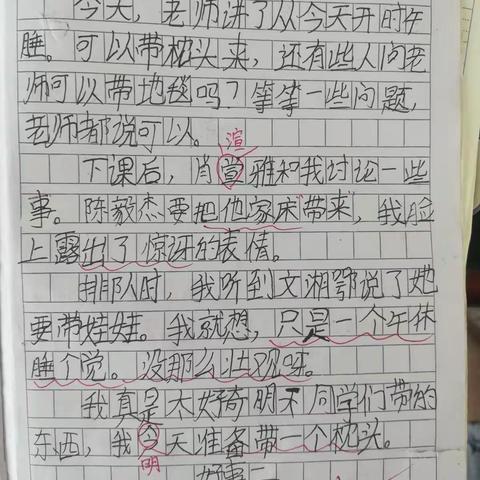 今天，老师讲了从今天开时午
睡。可以带枕头来，还有些人问老
师可以带地毯吗？等等一些问题，
老师都说可以。
渲
下课后，肖萱雅和我讨论一些
事。陈毅杰要把他家床"带来"，我脸
上露出了惊讶的表情。
排队时，我听到文湘鄂说了她
要带娃娃。我就想，只是一个午休
睡个觉。没那么壮观呀。
我真是太好奇明天同学们带的
东西，我今天准备带一个枕头。
明
好事二